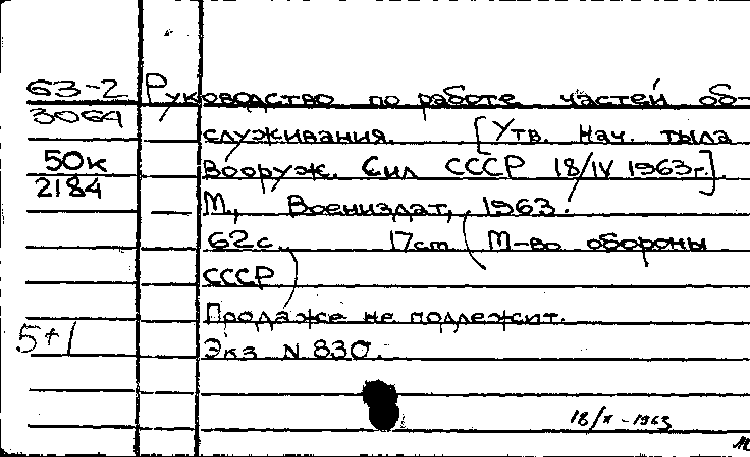 63-2 Руководство по работе частей об-
3064 служивания. [Утв. Нач. тыла
50к Вооруж. Сил СССР 18/IV 1963г.].
2184
М., Воениздат, 1963.
62с. 17см (М-во обороны
СССР)
Продаже не подлежит.
5+1
Экз N 830.
18/X-1963